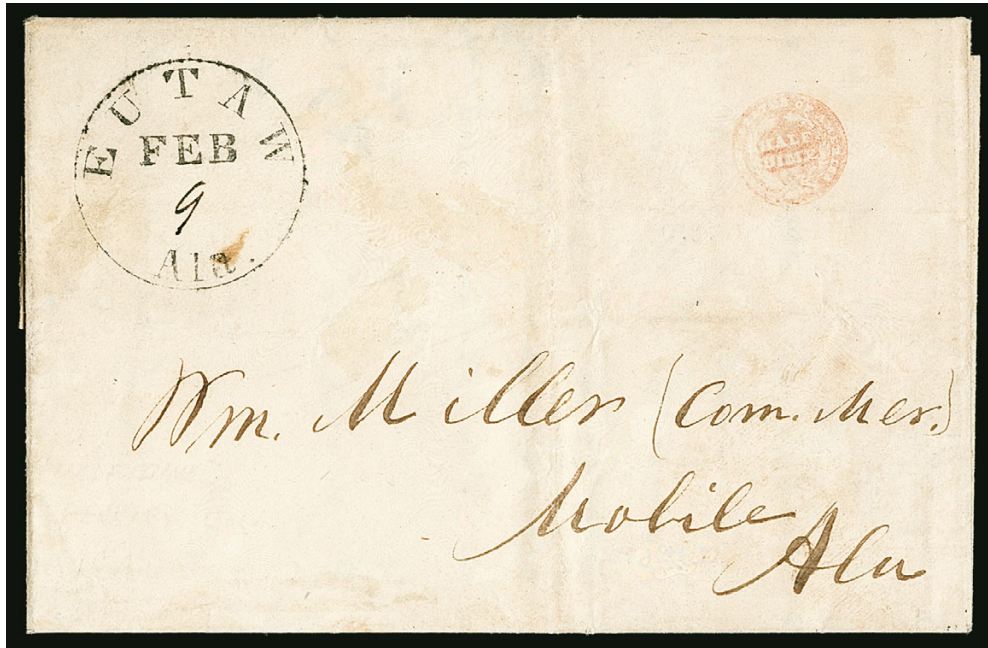 EUTAW
FEB
9
Ala.
HALF
DIME
Wm. Miller (Com. Mer.)
Mobile
Ala